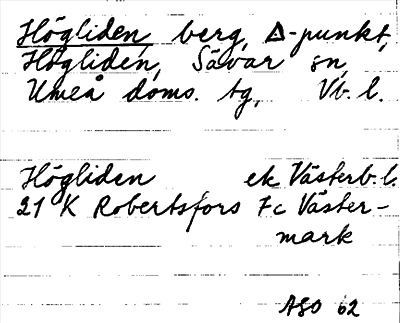 Högliden, berg, Δ-punkt,
Högliden, Sävar sn,
Umeå doms. tg, Vb. l.
Högliden ek Västerb. l.
21 K Robertsfors 7c Väster-
mark
ASO 62